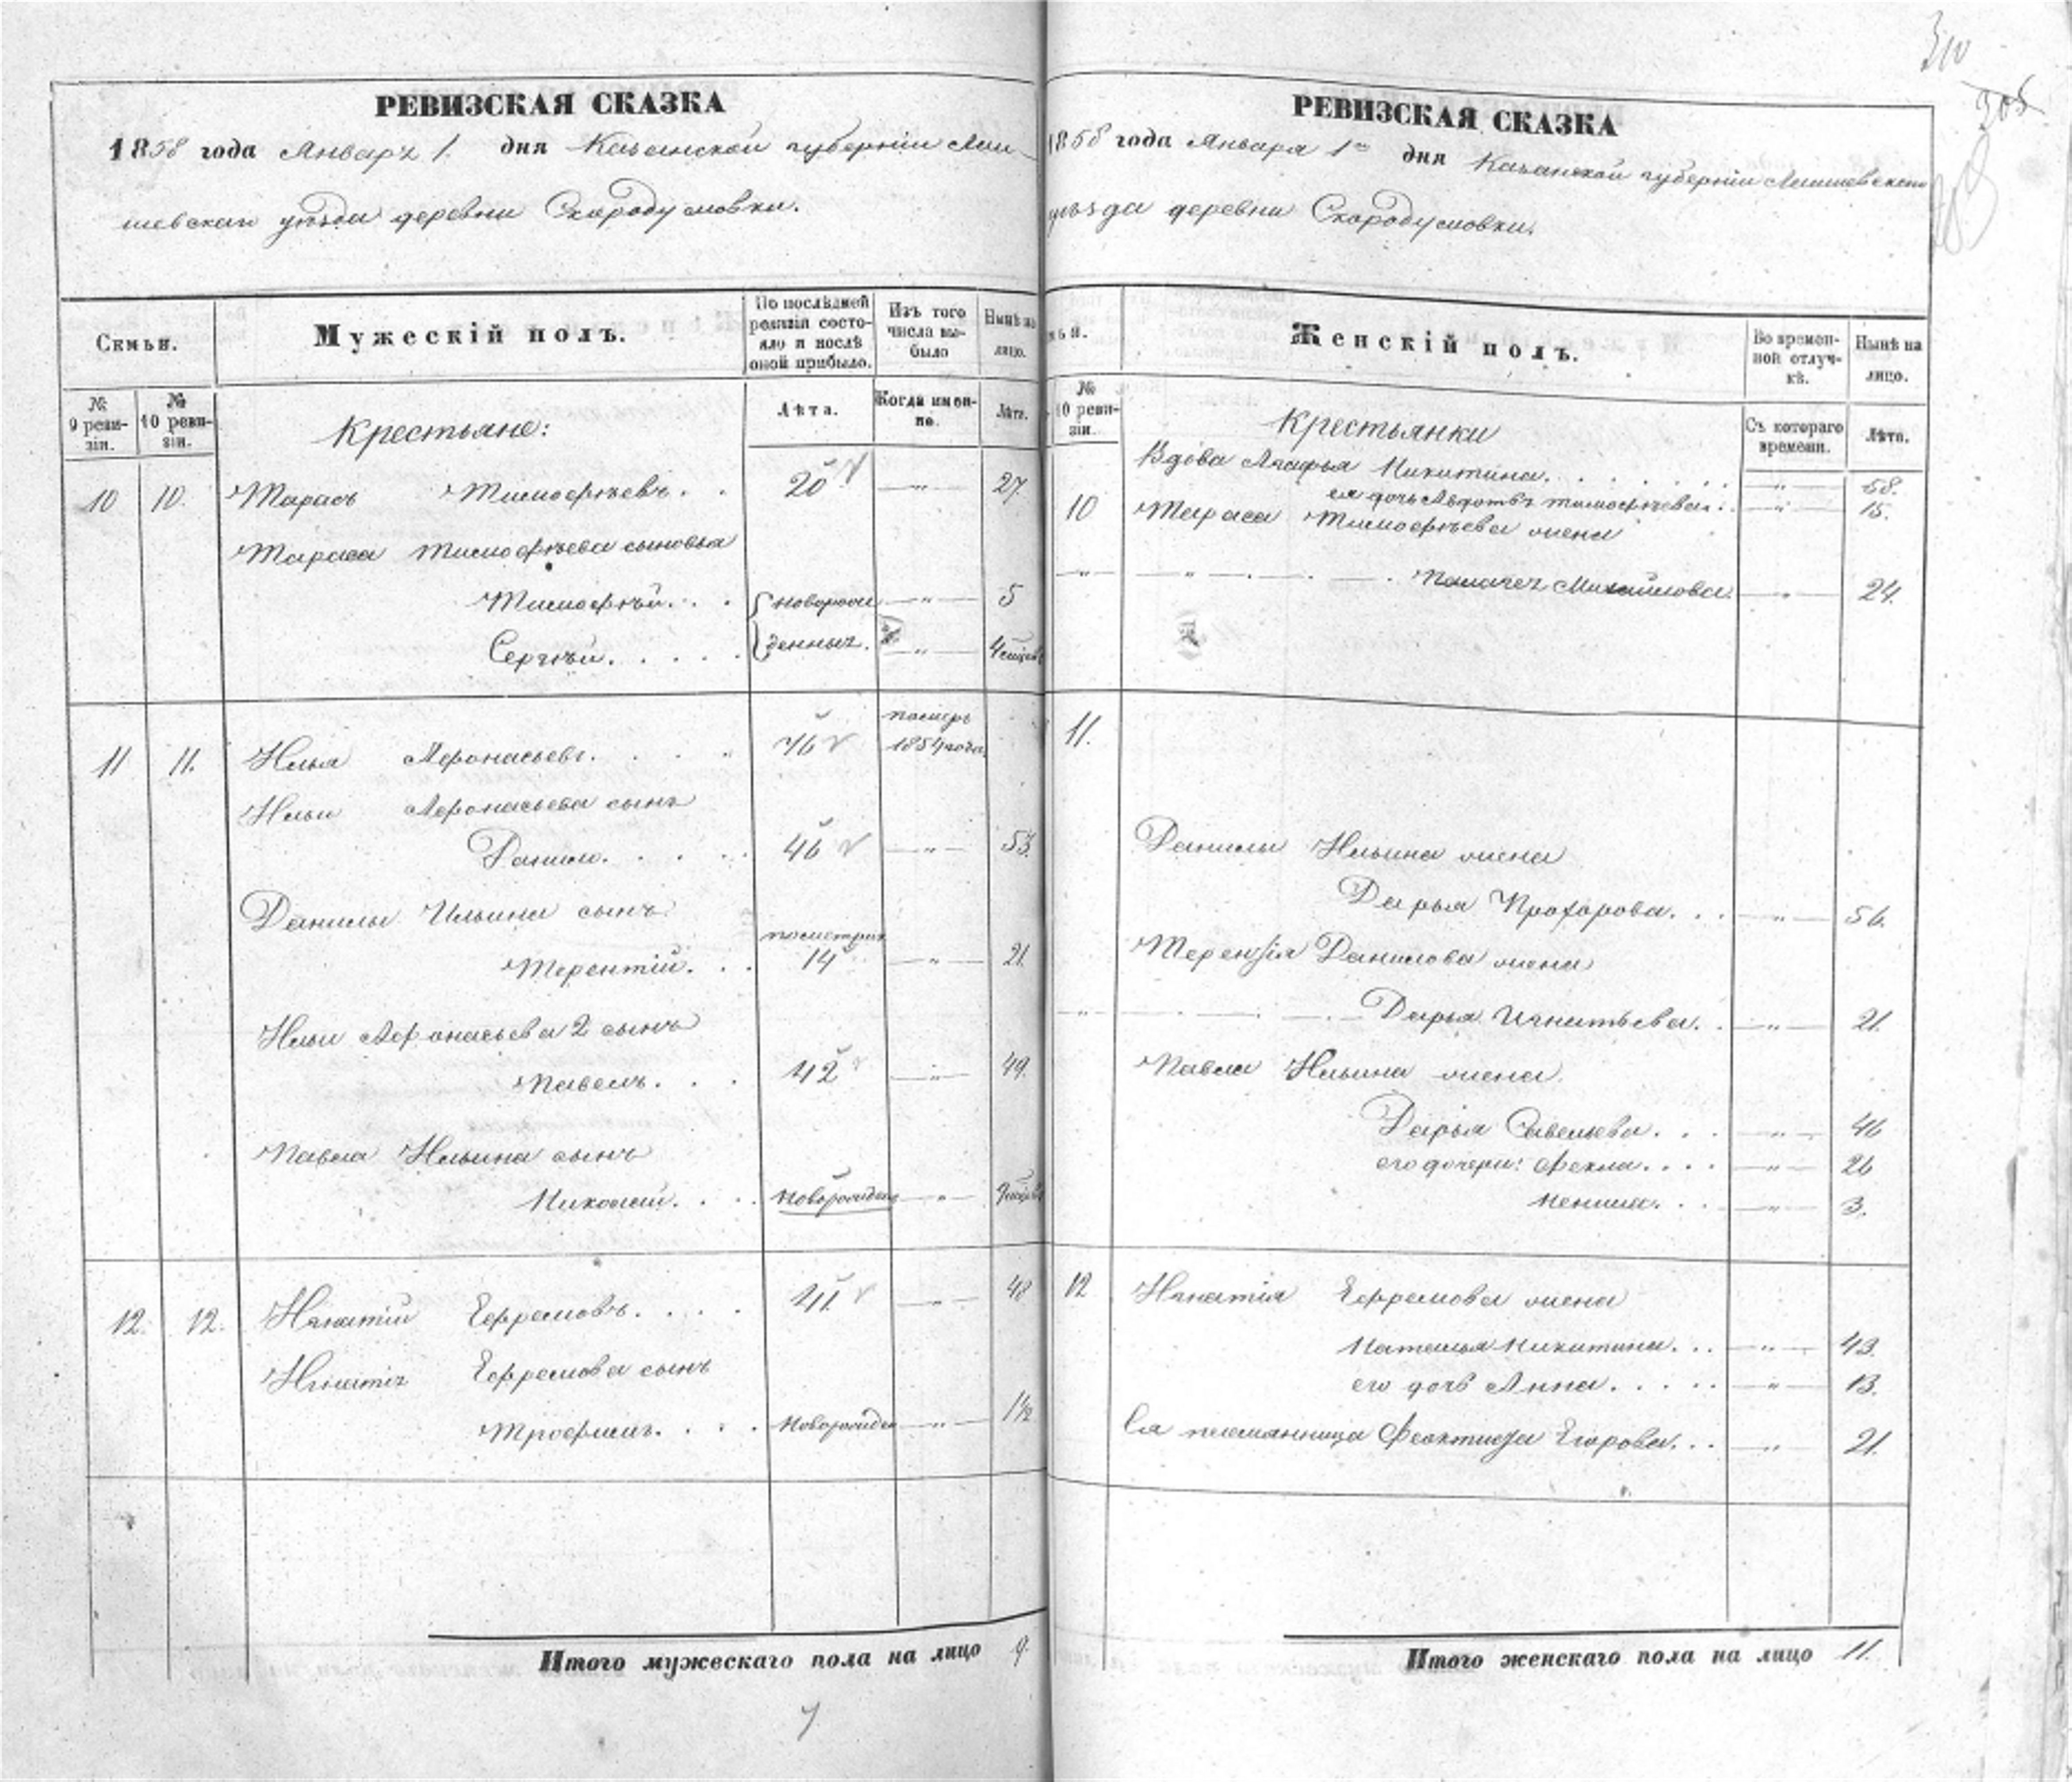 310
305
РЕВИЗСКАЯ СКАЗКА
1858 года Январъ 1. дня Казанской губерніи Лаи-
шевскаго уѣзда деревни Скородумовки.
Семьи.
Мужескій полъ.
По послѣдней ревизіи состояло и послѣ оной прибыло.
Изъ того числа выбыло
Нынѣ на лицо.
№ 9 ревизіи.
№ 10 ревизіи.
Крестьяне:
Лѣта.
Когда именно.
Лѣта.
10 10. Тарасъ Тимофѣевъ. . 20 — „ — 27.
Тараса Тимофѣева сыновья
Тимофѣй. . . новорож — „ — 5
Сергѣй. . . . . денныя. — „ —
11 11. Илья Афонасьевъ. . . . 76 померъ 1854 года
Ильи Афонасьева сынъ
Данило. . . . . 46 — „ — 53.
Данилы Ильина сынъ
Терентій. . . 14 — „ — 21.
Ильи Афонасьева 2 сынъ
Павелъ. . . 42 — „ — 49.
Павла Ильина сынъ
Николай. . . . — „ —
12. 12. Игнатій Ефремовъ. . . . 41. — „ — 48
Ефремова сынъ
Трофимъ. . . . Новорожден — „ — 1½
Итого мужескаго пола на лицо 9.
7
РЕВИЗСКАЯ СКАЗКА
1858 года Января 1го дня Казанской губерніи Лаишевскаго
уѣзда деревни Скородумовки.
ьи.
Женскій полъ.
Во временной отлучкѣ.
Нынѣ на лицо.
№ 10 ревизіи.
Крестьянки
Съ котораго времени.
Лѣта.
Вдова Агафья Никитина. . . . . . . „ 58.
ея дочь Авдотья Тимофѣева. : — „ — 15.
10 Тараса Тимофѣева жена
— „ — Михайлова. — „ — 24.
11.
Данилы Ильина жена
Дарья Прохорова. . . — „ — 56.
Терентія Данилова жена
— „ — Дарья Игнатьева. . — „ — 21.
Павла Ильина жена.
Дарья Савельева. . . — „ — 46
его дочери: Фекла. . . . — „ — 26
— „ — 3.
12 Игнатія Ефремова жена
Наталья Никитина. . . — „ — 43.
его дочь Анна. . . . . — „ — 13.
Ея племянница Феоктиста Егорова. . . — „ — 21.
Итого женскаго пола на лицо 11.